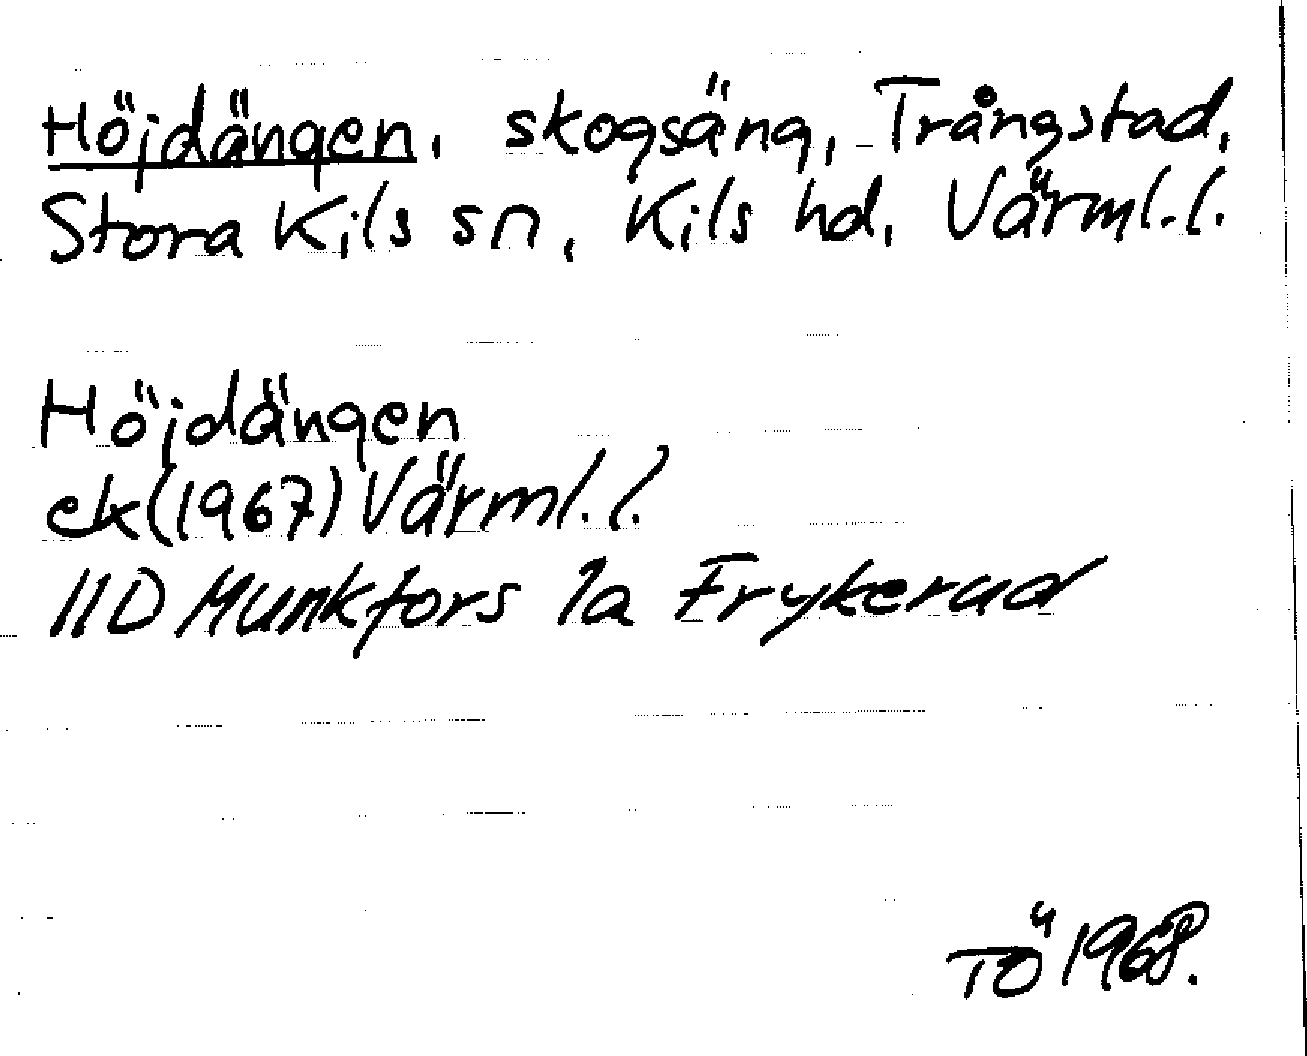 Höjdängen, skogsäng, Trångstad,
Stora Kils sn, Kils hd, Värml.l.
Höjdängen
ek (1967) Värml.l.
11D Munkfors 1a Frykerud
TÖ 1968.